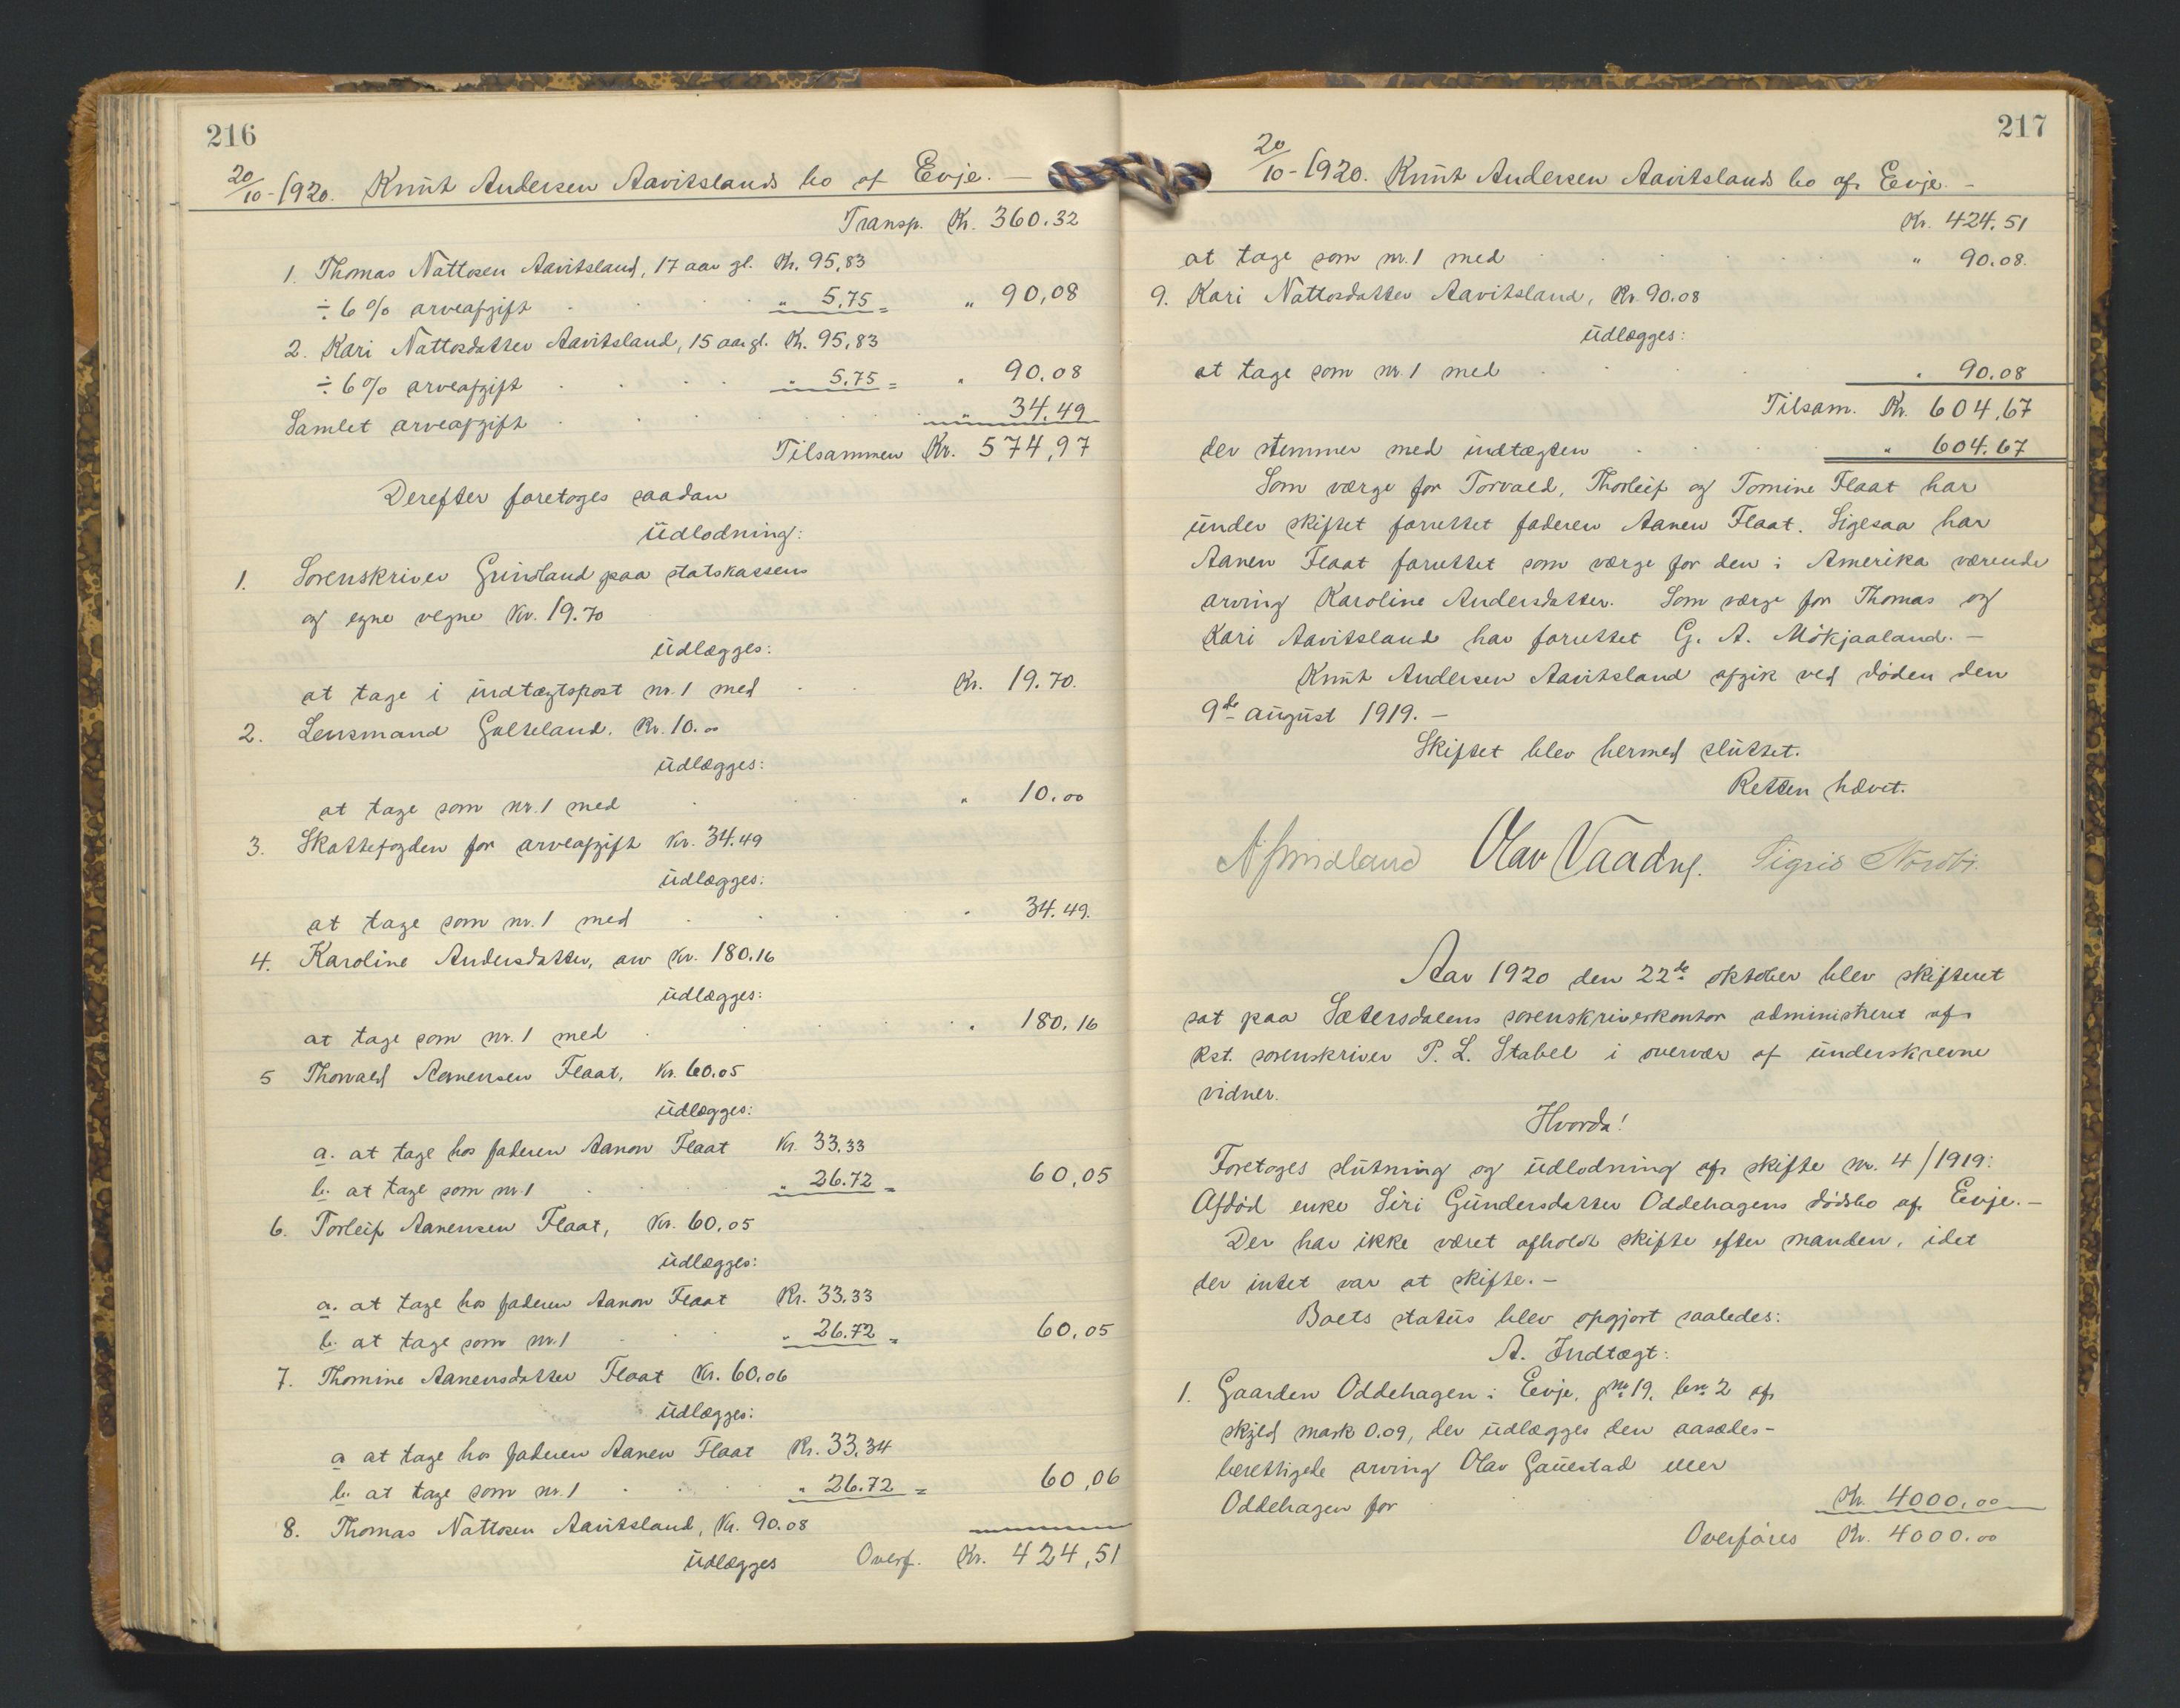 216
20/10-1920. Knut Andersen Aavitslands bo af Evje. —
Transp. Kr. 360.32
1. Thomas Nattosen Aavitsland, 17 aar gl. Kr. 95,83
÷ 6% arveafgift " 5,75 = " 90,08
2. Kari Nattosdatter Aavitsland, 15 aar gl. Kr. 95,83
÷ 6% arveafgift " 5,75 = " 90.08
Samlet arveafgift " 34,49
Tilsammen Kr. 574,97
Derefter foretoges saadan
udlodning:
1. Sorenskriver Grindland paa statskassens
og egne vegne Kr. 19.70
udlægges:
at tage i indtægtspost nr. 1 med Kr. 19.70.
2. Lensmand Galteland. Kr. 10.00
udlægges:
at tage som nr. 1 med " 10.00
3. Skattefogden for arveafgift Kr. 34.49
udlægges:
at tage som nr. 1 med " 34.49.
4. Karoline Andersdatter, arv Kr. 180.16
udlægges:
at tage som nr. 1 med " 180,16
5 Thorvald Aanensen Flaat, Kr. 60.05
udlægges:
a. at tage hos faderen Aanon Flaat Kr. 33,33
b. at tage som nr. 1 " 26.72 = 60,05
6. Torleif Aanensen Flaat, Kr. 60,05
udlægges:
a. at tage hos faderen Aanon Flaat Kr. 33,33
b. at tage som nr. 1 " 26.72 = 60.05
7. Thomine Aanensdatter Flaat Kr. 60,06
udlægges:
a at tage hos faderen Aanen Flaat Kr. 33,34
b. at tage som nr. 1 " 26.72 = 60,06
8. Thomas Nattosen Aavitsland, Kr. 90.08
udlægges Overf. Kr. 424,51
217
20/10-1920. Knut Andersen Aavitslands bo af Evje. —
Kr. 424.51
at tage som nr. 1 med " 90.08.
9. Kari Nattosdatter Aavitsland, Kr. 90.08
udlægges:
at tage som nr. 1 med " 90.08
Tilsam. Kr. 604,67
der stemmer med indtægten " 604.67
Som værge for Torvald, Thorleif og Tomine Flaat har
under skiftet forrettet faderen Aanen Flaat. Ligesaa har
Aanen Flaat forrettet som værge for den i Amerika værende
arving Karoline Andersdatter. Som værge for Thomas og
Kari Aavitsland har forrettet G. A. Mökjaaland. —
Knut Andersen Aavitsland afgik ved döden den
9de august 1919. —
Skiftet blev hermed sluttet.
Retten hævet.
A Grindland Olav Sigrid
Aar 1920 den 22de oktober blev skifteret
sat paa Sætersdalens sorenskriverkontor administreret af
kst. sorenskriver P. L. Stabel i overvær af underskrevne
vidner.
Hvorda!
Foretoges slutning og udlodning af skifte nr. 4/1919:
Afdöd enke Siri Gundersdatter Oddehagens dödsbo af Evje. —
Der har ikke været afholdt skifte efter manden, idet
der intet var at skifte. —
Boets status blev opgjort saaledes:
A. Indtægt:
1. Gaarden Oddehagen i Evje, gno 19, bno 2 af
skyld mark 0.09, der udlægges den aasædes-
berettigede arving Olav Gauestad eller
Oddehagen for Kr. 4000,00
Overføres Kr. 4000.00